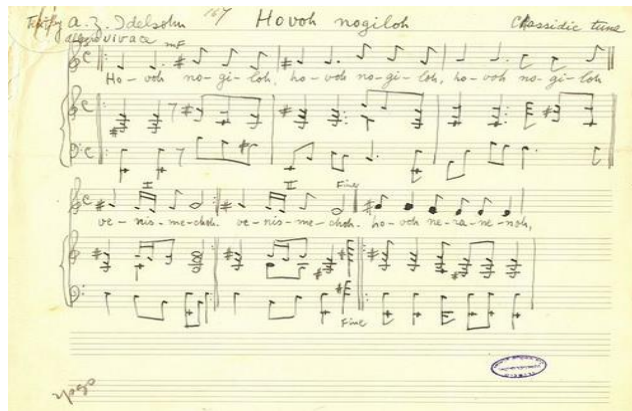 Text by A. Z. Idelsohn 167 Hovoh nogiloh Chassidic tune
Allegro vivace mF
Ho-voh no-gi-loh, ho-voh no-gi-loh, ho-voh no-gi-loh
I II Fine
ve-nis-me-choh. ve-nis-me-choh. ho-voh ne-ra-ne-noh,
Fine